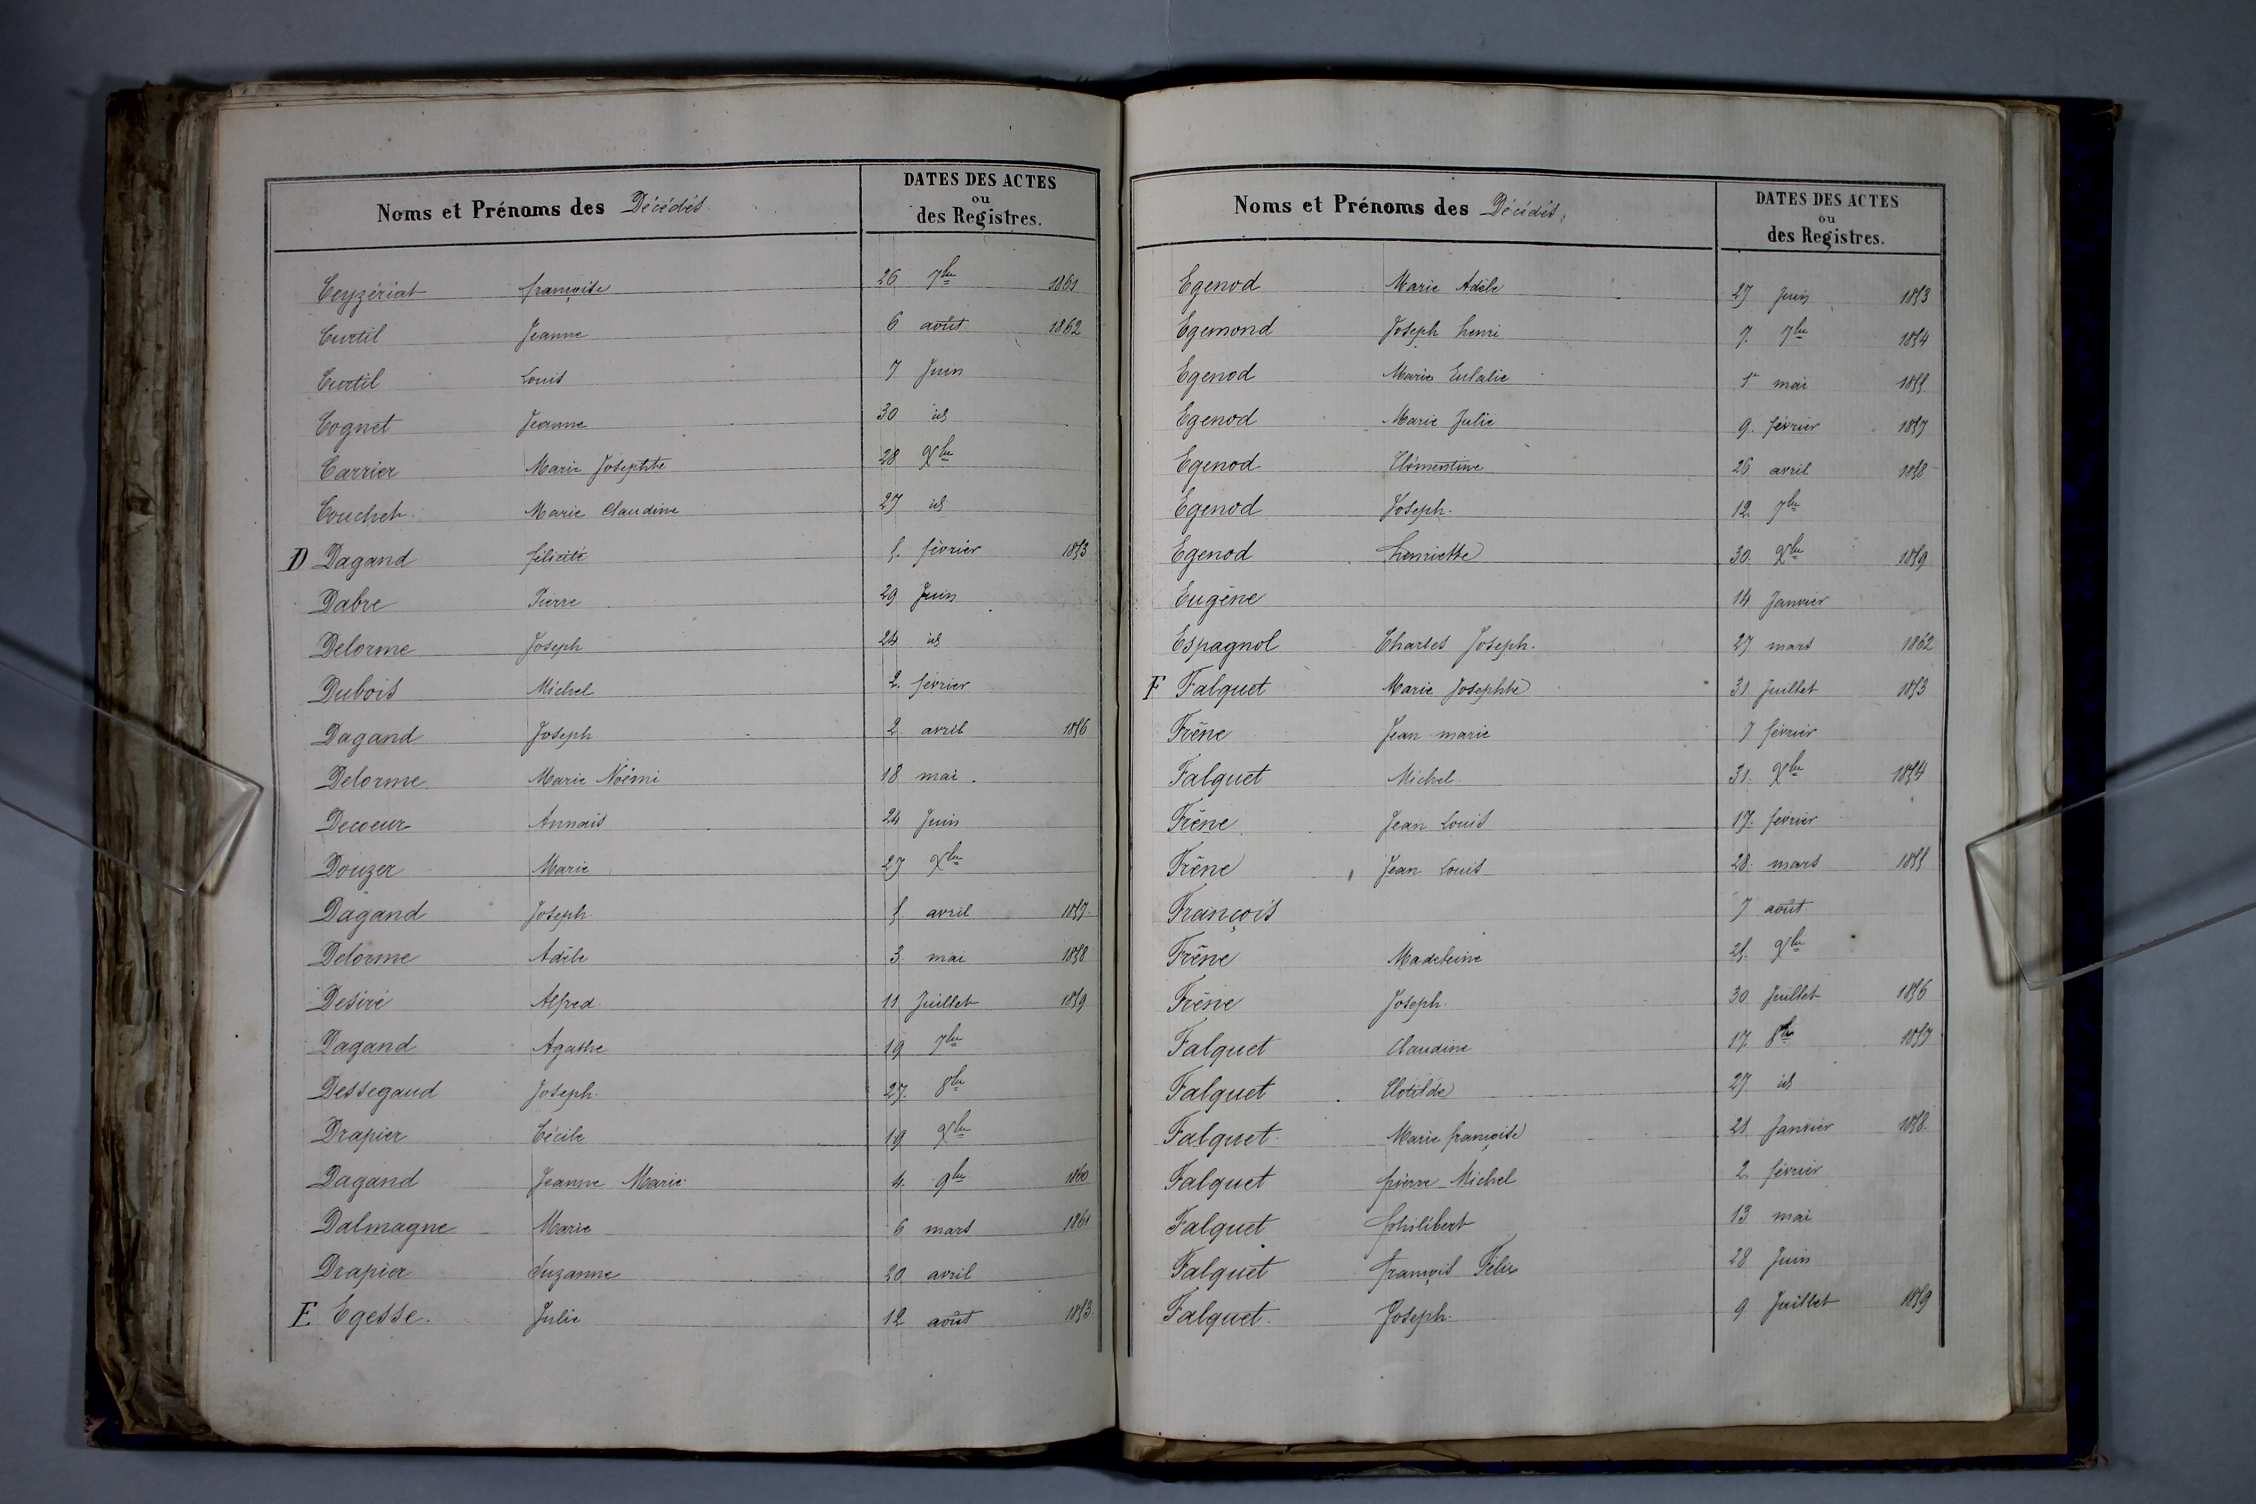 Noms et Prénoms des Décédés
DATES DES ACTES
ou
des Registres.
Ceyzériat françoise 26 7bre 1861
Curtil Jeanne 6 août 1862
Curtil Louis 7 Juin
Cognet Jeanne 30 id
Carrier Marie Josephte 28 Xbre
Couchet Marie Claudine 27 id
D Dagand félicité 5 février 1853
Dabre Pierre 29 Juin
Delorme Joseph 24 id
Dubois Michel 2. février
Dagand Joseph 2 avril 1856
Delorme Marie Noémi 18 mai
Decoeur Annais 24 Juin
Douzer Marie 27 Xbre
Dagand Joseph 5 avril 1857
Delorme Adèle 3 mai 1858
Désiré Alfred 11 Juillet 1859
Dagand Agathe 19 7bre
Dessegaud Joseph 27 8bre
Drapier Cécile 19 Xbre
Dagand Jeanne Marie 4 9bre 1860
Dalmagne Marie 6 mars 1861
Drapier Suzanne 20 avril
E Egesse Julie 12 août 1853
Noms et Prénoms des Décédés
DATES DES ACTES
ou
des Registres.
Egenod Marie Adèle 27 Juin 1853
Egemond Joseph henri 7. 7bre 1854
Egenod Marie Eulalie 1r mai 1855
Egenod Marie Julie 9. février 1857
Egenod Clémentine 26 avril 1858
Egenod Joseph 12 7bre
Egenod henriette 30. Xbre 1859
Eugène 14 Janvier
Espagnol Charles Joseph 27 mars 1862
F Falquet Marie Josephte 31 Juillet 1853
Frêne Jean marie 7 février
Falquet Michel 31. Xbre 1854
Frêne Jean Louis 17. février
Frêne Jean Louis 28. mars 1855
François 7 août
Frêne Madeleine 25. Xbre
Frêne Joseph 30 Juillet 1856
Falquet Claudine 17. 8bre 1857
Falquet Clotilde 27 id
Falquet Marie françoise 21 Janvier 1858
Falquet pierre Michel 2 février
Falquet philibert 13 mai
Falquet françois Félix 28 Juin
Falquet Joseph 9 Juillet 1859